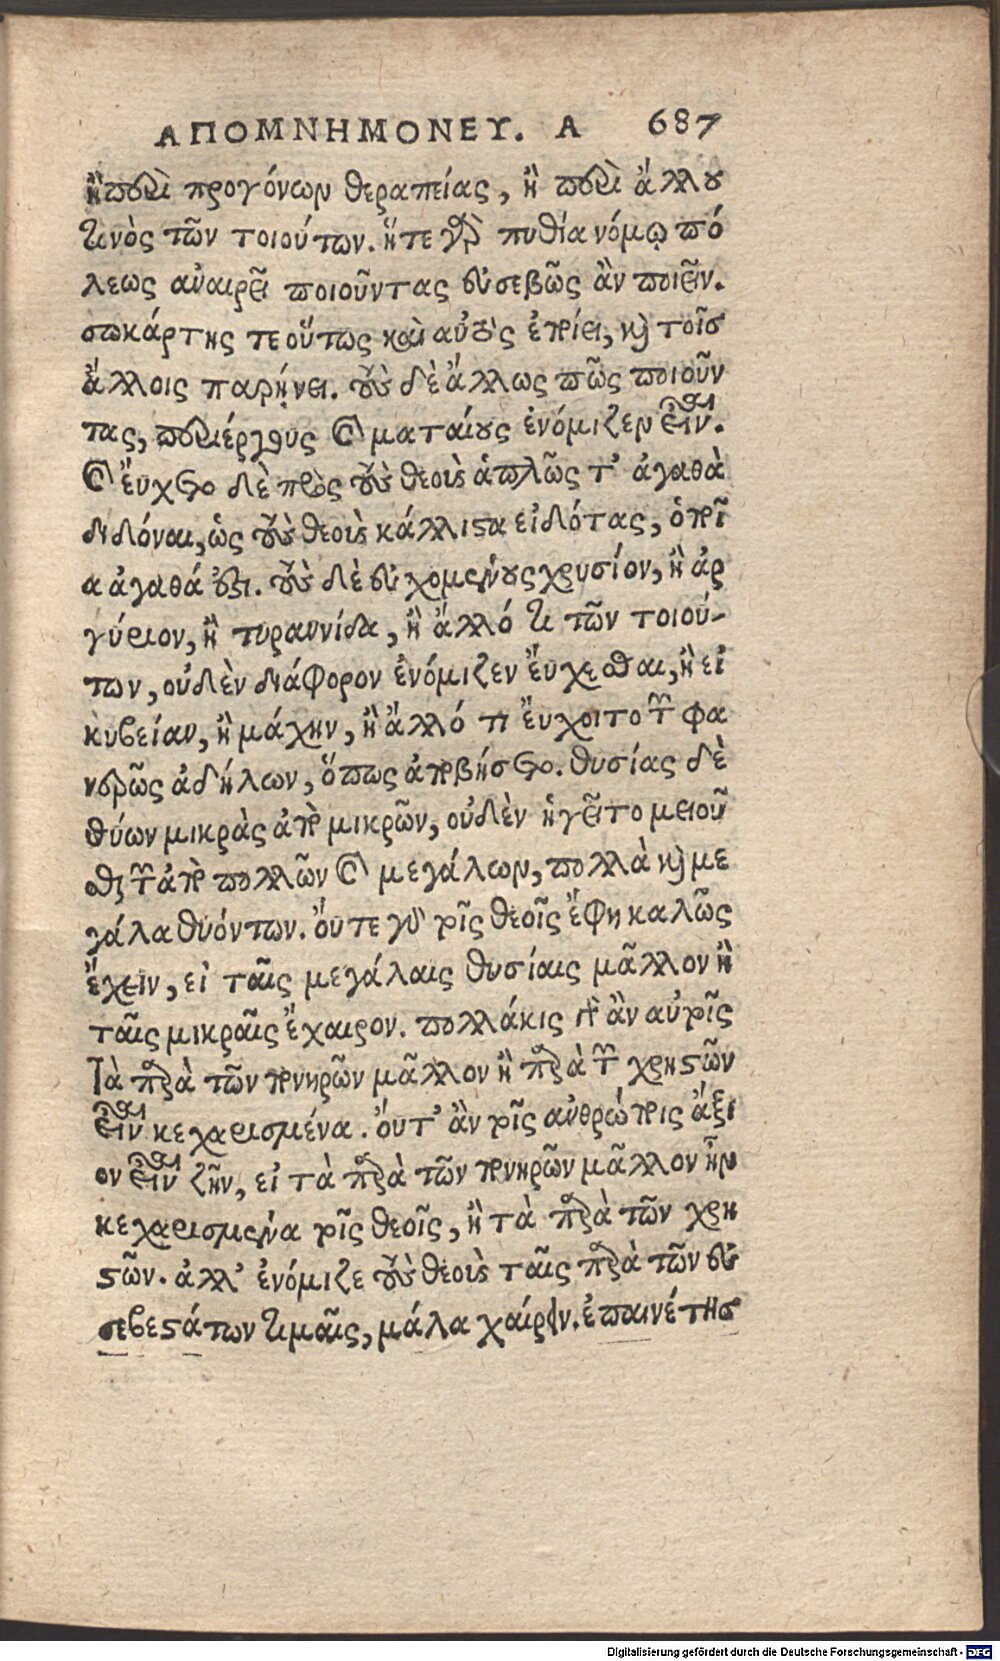 ΑΠΟΜΝΗΜΟΝΕΥ. Α 687
ἢ περὶ προγόνων θεραπείας, ἢ περὶ ἄλλου
τινὸς τῶν τοιούτων. ἥτε γὰρ πυθία νόμῳ πό
λεως ἀναιρεῖ ποιοῦντας εὐσεβῶς ἂν ποιεῖν.
σωκράτης τε οὕτως καὶ αὐτὸς ἐποίει, καὶ τοῖσ
ἄλλοις παρῄνει. τοὺς δὲ ἄλλως πῶς ποιοῦν
τας, περιέργους καὶ ματαίους ἐνόμιζεν εἶναι.
καὶ ἔυχετο δὲ πρὸς τοὺς θεοὺς ἁπλῶς τ' ἀγαθὰ
διδόναι, ὡς τοὺς θεοὺς κάλλιστα εἰδότας, ὁποῖ
α ἀγαθά ἐστι. τοὺς δὲ εὐχομένους χρυσίον, ἢ ἀρ
γύριον, ἢ τυραννίδα, ἢ ἄλλό τι τῶν τοιού-
των, οὐδὲν διάφορον ἐνόμιζεν ἔυχεσθαι, ἢ εἰ
κυβείαν, ἢ μάχην, ἢ ἄλλό τι ἔυχοιτο τῶν φα
νερῶς ἀδήλων, ὅπως ἀποβήσετο. θυσίας δὲ
θύων μικρὰς ἀπὸ μικρῶν, οὐδὲν ἡγεῖτο μειοῦ
σθαι τῶν ἀπὸ πολλῶν καὶ μεγάλων, πολλὰ καὶ με
γάλα θυόντων. ὄυτε γὰρ τοῖς θεοῖς ἔφη καλῶς
ἔχειν, εἰ ταῖς μεγάλαις θυσίαις μᾶλλον ἢ
ταῖς μικραῖς ἔχαιρον. πολλάκις γὰρ ἂν αὐτοῖς
τὰ παρὰ τῶν πονηρῶν μᾶλλον ἢ παρὰ τῶν χρηστῶν
εἶναι κεχαρισμένα. ὄυτ' ἂν τοῖς ἀνθρώποις ἄξι
ον εἶναι ζῆν, εἰ τὰ παρὰ τῶν πονηρῶν μᾶλλον ἦν
κεχαρισμένα τοῖς θεοῖς, ἢ τὰ παρὰ τῶν χρη
στῶν. ἀλλ' ἐνόμιζε τοὺς θεοὺς ταῖς παρὰ τῶν εὐ
σεβεστάτων τιμαῖς, μάλα χαίρειν. ἐπαινέτησ
Digitalisierung gefördert durch die Deutsche Forschungsgemeinschaft - DFG